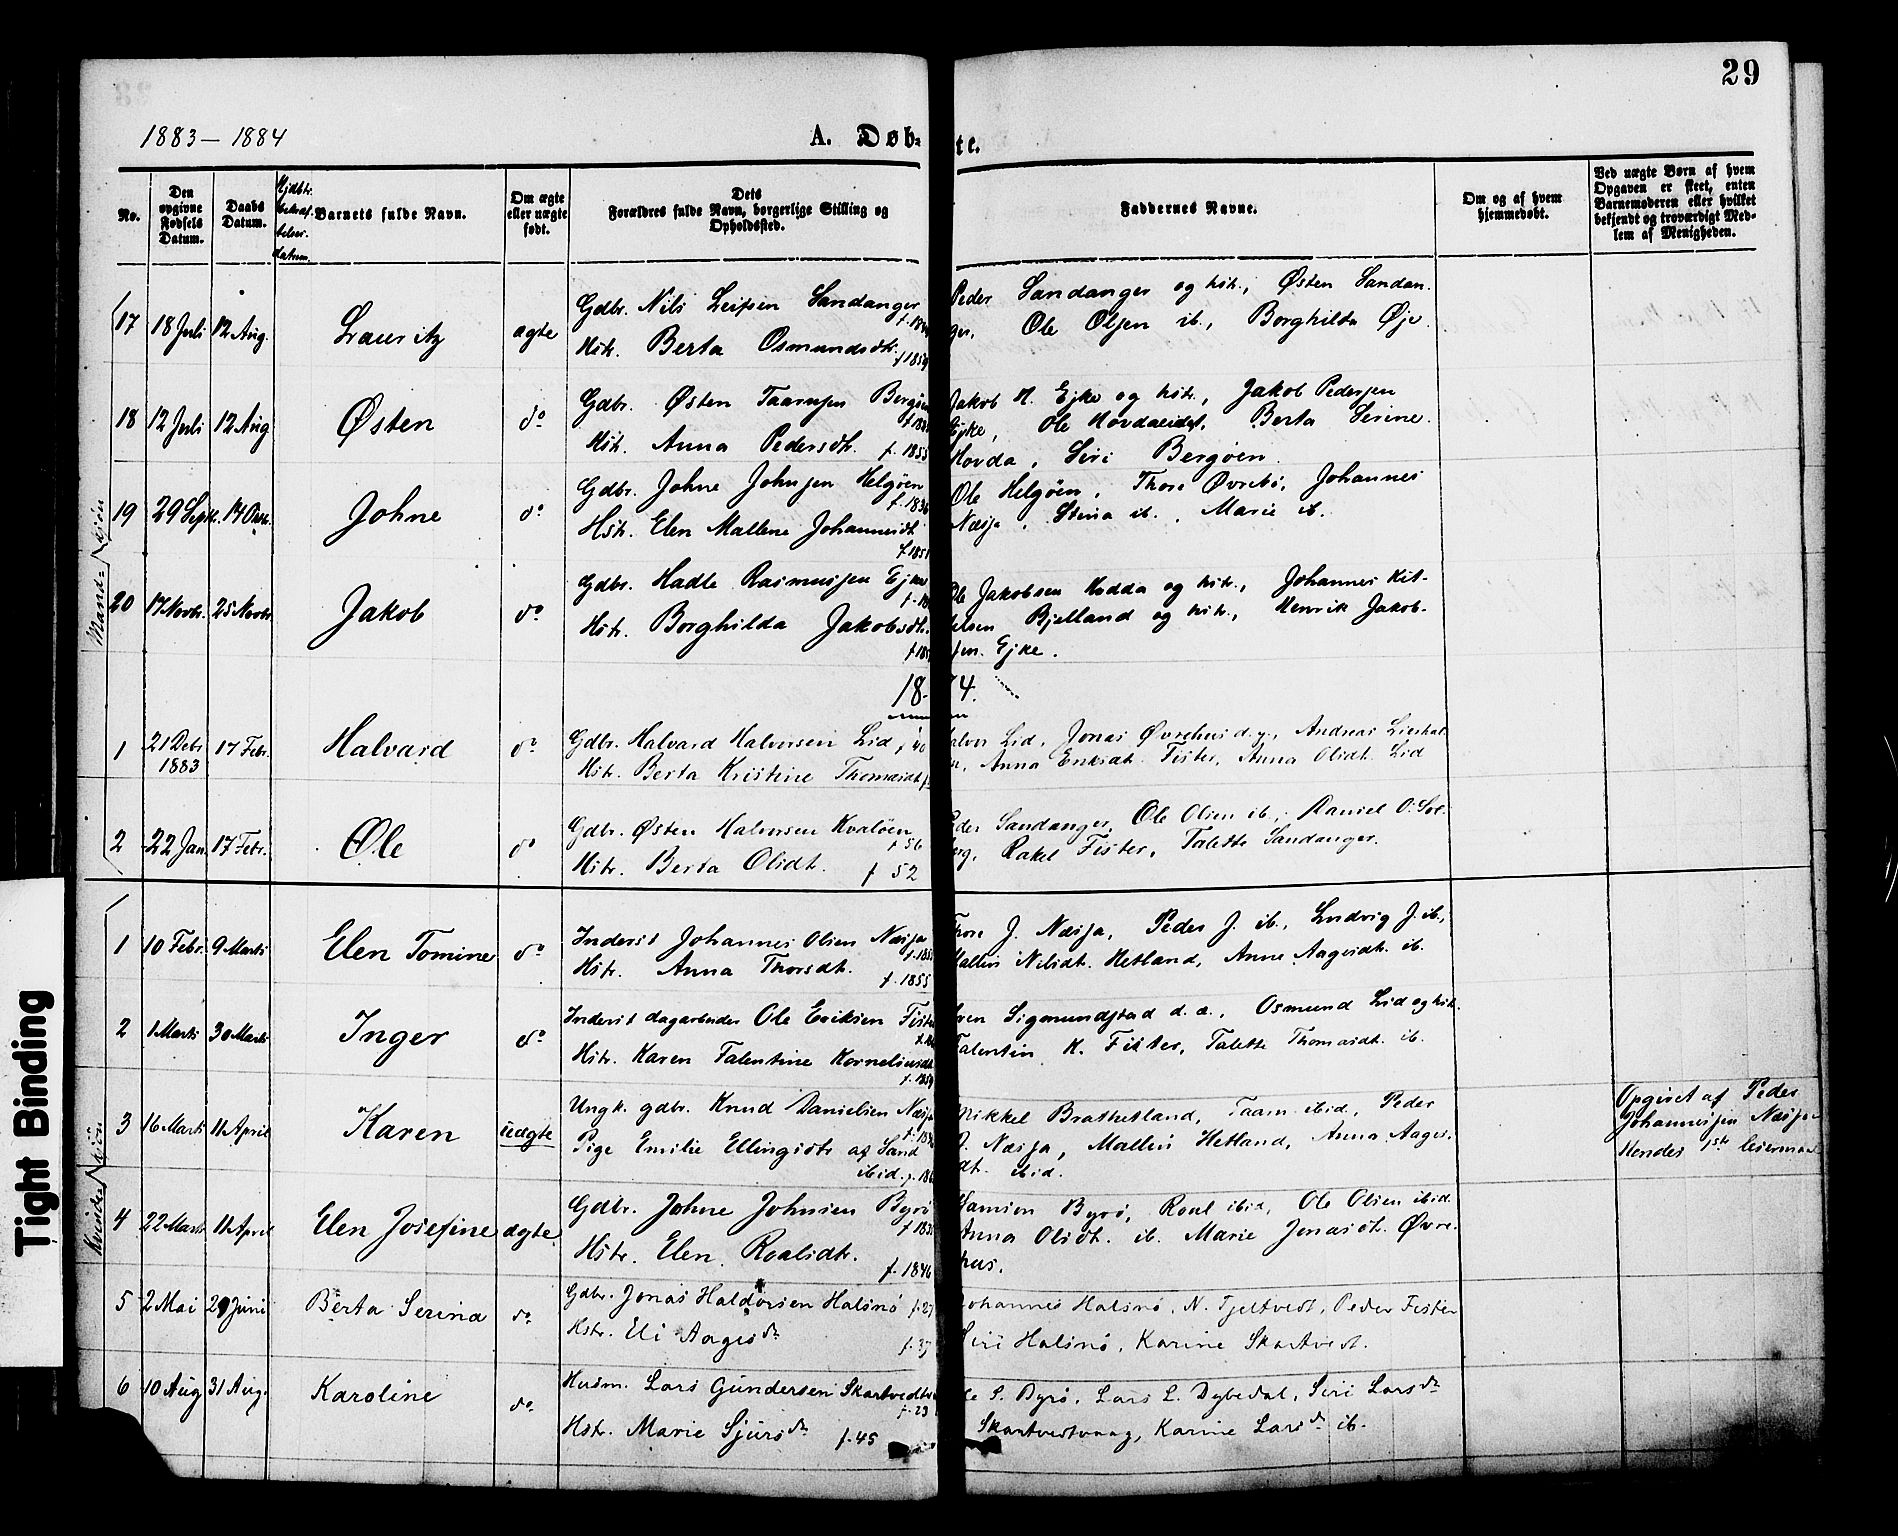 29
1883 – 1884
A. Døb=
te.
No.
Den opgivne Fødsels Datum.
Daabs Datum.
Barnets fulde Navn.
Om ægte eller uægte født.
Dets Forældres fulde Navn, borgerlige Stilling og Opholdssted.
Faddernes Navne.
Om og af hvem hjemmedøbt.
Ved uægte Børn af hvem Opgaven er skeet, enten Barnemoderen eller hvilket bekjendt og troværdigt Medlem af Menigheden.
Mand=kjön
17 18 Juli 12 Aug. Lauritz ægte Gdbr. Nils Leifsen Sandanger
Hstr. Berta Osmundsdtr. f 1859
Peder Sandanger og hstr., Østen Sandan.
ger, Ole Olsen ib., Borghilda Øje.
18 12 Juli 12 Aug Østen do Gdbr. Østen Taarnsen Bergøen
Hstr. Anna Pedersdtr. f. 1855
Jakob H. Ejke og hstr., Jakob Pedersen
Ejke, Ole Hovdaeidet, Berta Serine
Hovda, Siri Bergøen
19 29 Septr. Johne do Gdbr. Johne Johnsen Helgøen
f. 1836
Hstr. Elen Mallene Johannesdtr
Ole Helgøen, Thore Øvrebø, Johannes
Næsja, Stina ib., Marie ib.
20 17 Novbr. 25 Novbr. Jakob do Gdbr. Hadle Rasmussen Ejke
Hstr. Borghilda Jakobsdtr.
Ole Jakobsen Hodda og hstr., Johannes Kit-
telsen Bjelland og hstr., Henrik Jakob-
sen Ejke.
18 4.
1 21 Debr 1883 17 Febr. Halvard do Gdbr. Halvard Halvorsen Lid f 40
Hstr. Berta Kristine Thomasdtr
Halvor Lid, Jonas Øvrehus d. y., Andreas
Anna Eriksdtr. Fister, Anna Olsdtr. Lid
2 22 Jan. 17 Febr. Ole do Gdbr. Østen Halvorsen Kvaløen
f 56
Hstr. Berta Olsdtr. f 52
Peder Sandanger, Ole Olsen ib., Daniel O. Sol-
berg, Rakel Fister, Talette Sandanger.
Kvindekjön
1 10 Febr. 9 Marts Elen Tomine do Inderst Johannes Olsen Næsja
Hstr. Anna Thorsdtr. f. 1855
Thore J. Næsja, Peder J. ib., Ludvig J. ib.,
Mallene Nilsdtr. Hetland, Anne Aagesdtr. ib.
2 1 Marts 30 Marts Inger do Inderst dagarbeider Ole Eriksen Fister
Hstr. Karen Talentine Korneliusdtr
f. 1859
Sigmundstad d. æ., Osmund Lid og hstr.
Talentin K. Fister, Talette Thomasdtr. ib.
3 16 Marts 11 April Karen uægte Ungk. gdbr. Knud Danielsen Næsja
Pige Emilie Ellingsdtr af Sand
ibid.
Mikkel Brathetland, Taarn ibid, Peder
J. Næsja, Mallene Hetland, Anna Aages-
dtr. ibid.
Opgivet af Peder
Johannessen Næsja
Hendes 1ste leiermaal
4 22 Marts 11 April Elen Josefine ægte Gdbr. Johne Johnsen Byrø
Hstr. Elen Roalsdtr. f. 1846
Samson Byrø, Roal ibid, Ole Olsen ibid.
Anna Olsdtr. ib. Marie Jonasdtr. Øvre-
hus.
5 2 Mai 29 Juni Berta Serina do. Gdbr. Jonas Haldorsen Halsnø f. 27
Hstr. Eli Aagesdtr f. 37
Johannes Halsnø, N. Tjeltvedt, Peder Fister
Siri Halsnø, Karine Skartvedt.
6 10 Aug 31 Aug. Karoline do. Husm. Lars Gundersen Skartvedt
f. 23
Hstr. Marie Sjursdtr f. 45
Ole S. Byrø, Lars L. Dybedal, Siri Larsdtr
Skartvedtvaag, Karine Larsdtr ib.
Tight Binding